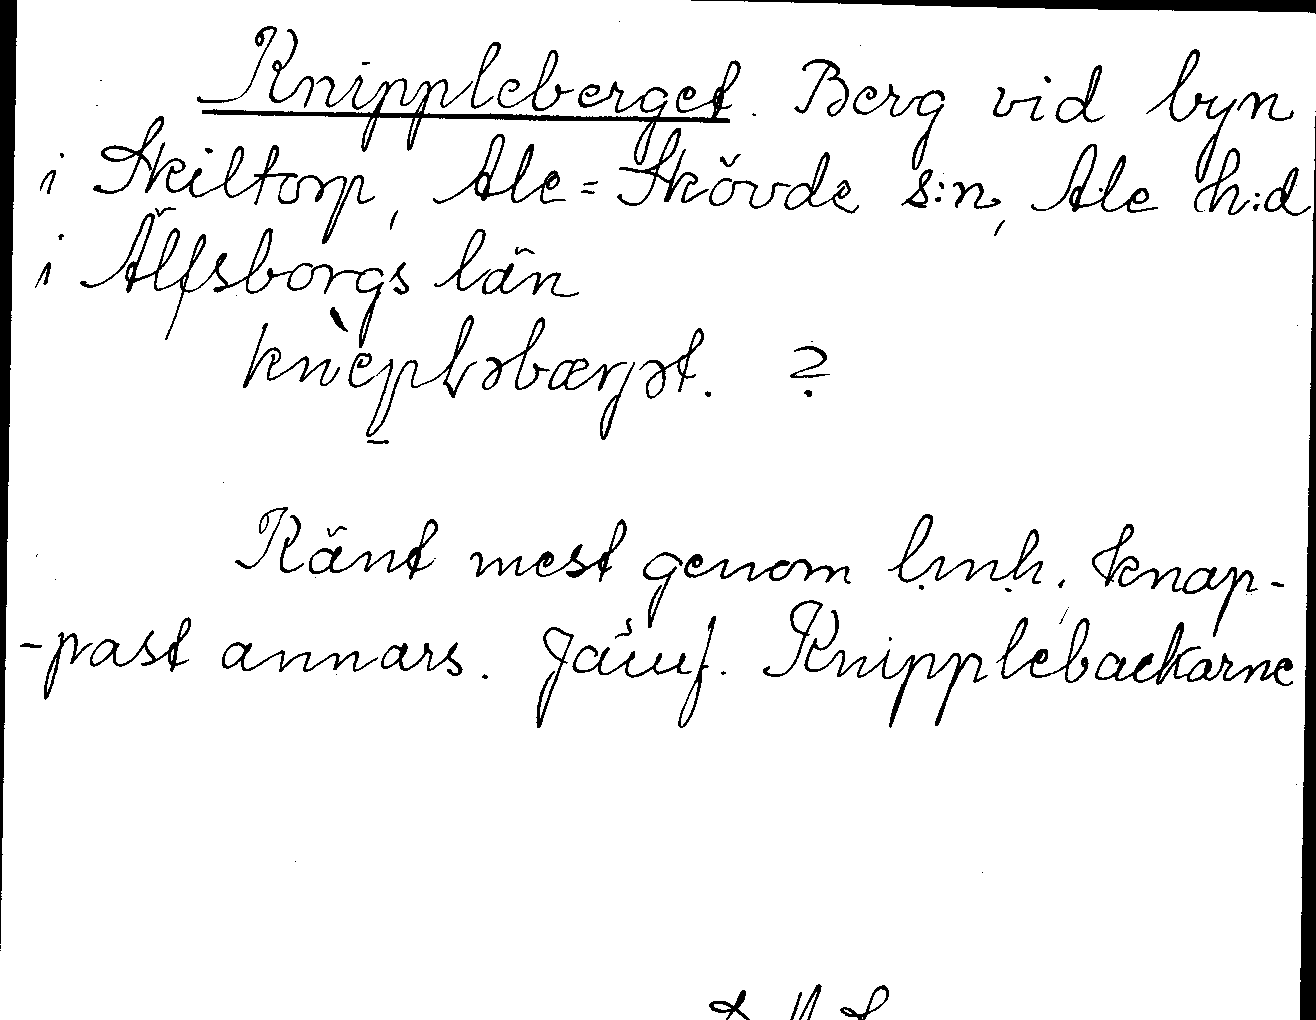 Knippleberget. Berg vid byn
i Skiltorp, Ale=Skövde s:n, Ale h:d
i Älfsborgs län
knèpləbærjət. ?
Känt mest genom l.m.h. knap-
-past annars. Jämf. Knipplebackarne